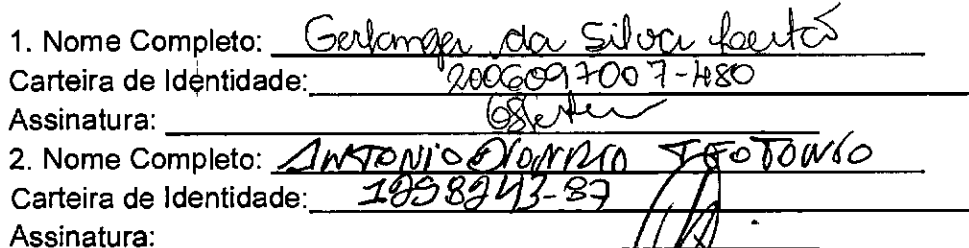 1. Nome Completo: Gerlanga da Silva
Carteira de Identidade: 2006097007-480
Assinatura:
2. Nome Completo: ANTONIO TEOTONIO
Carteira de Identidade: 1298243-87
Assinatura: